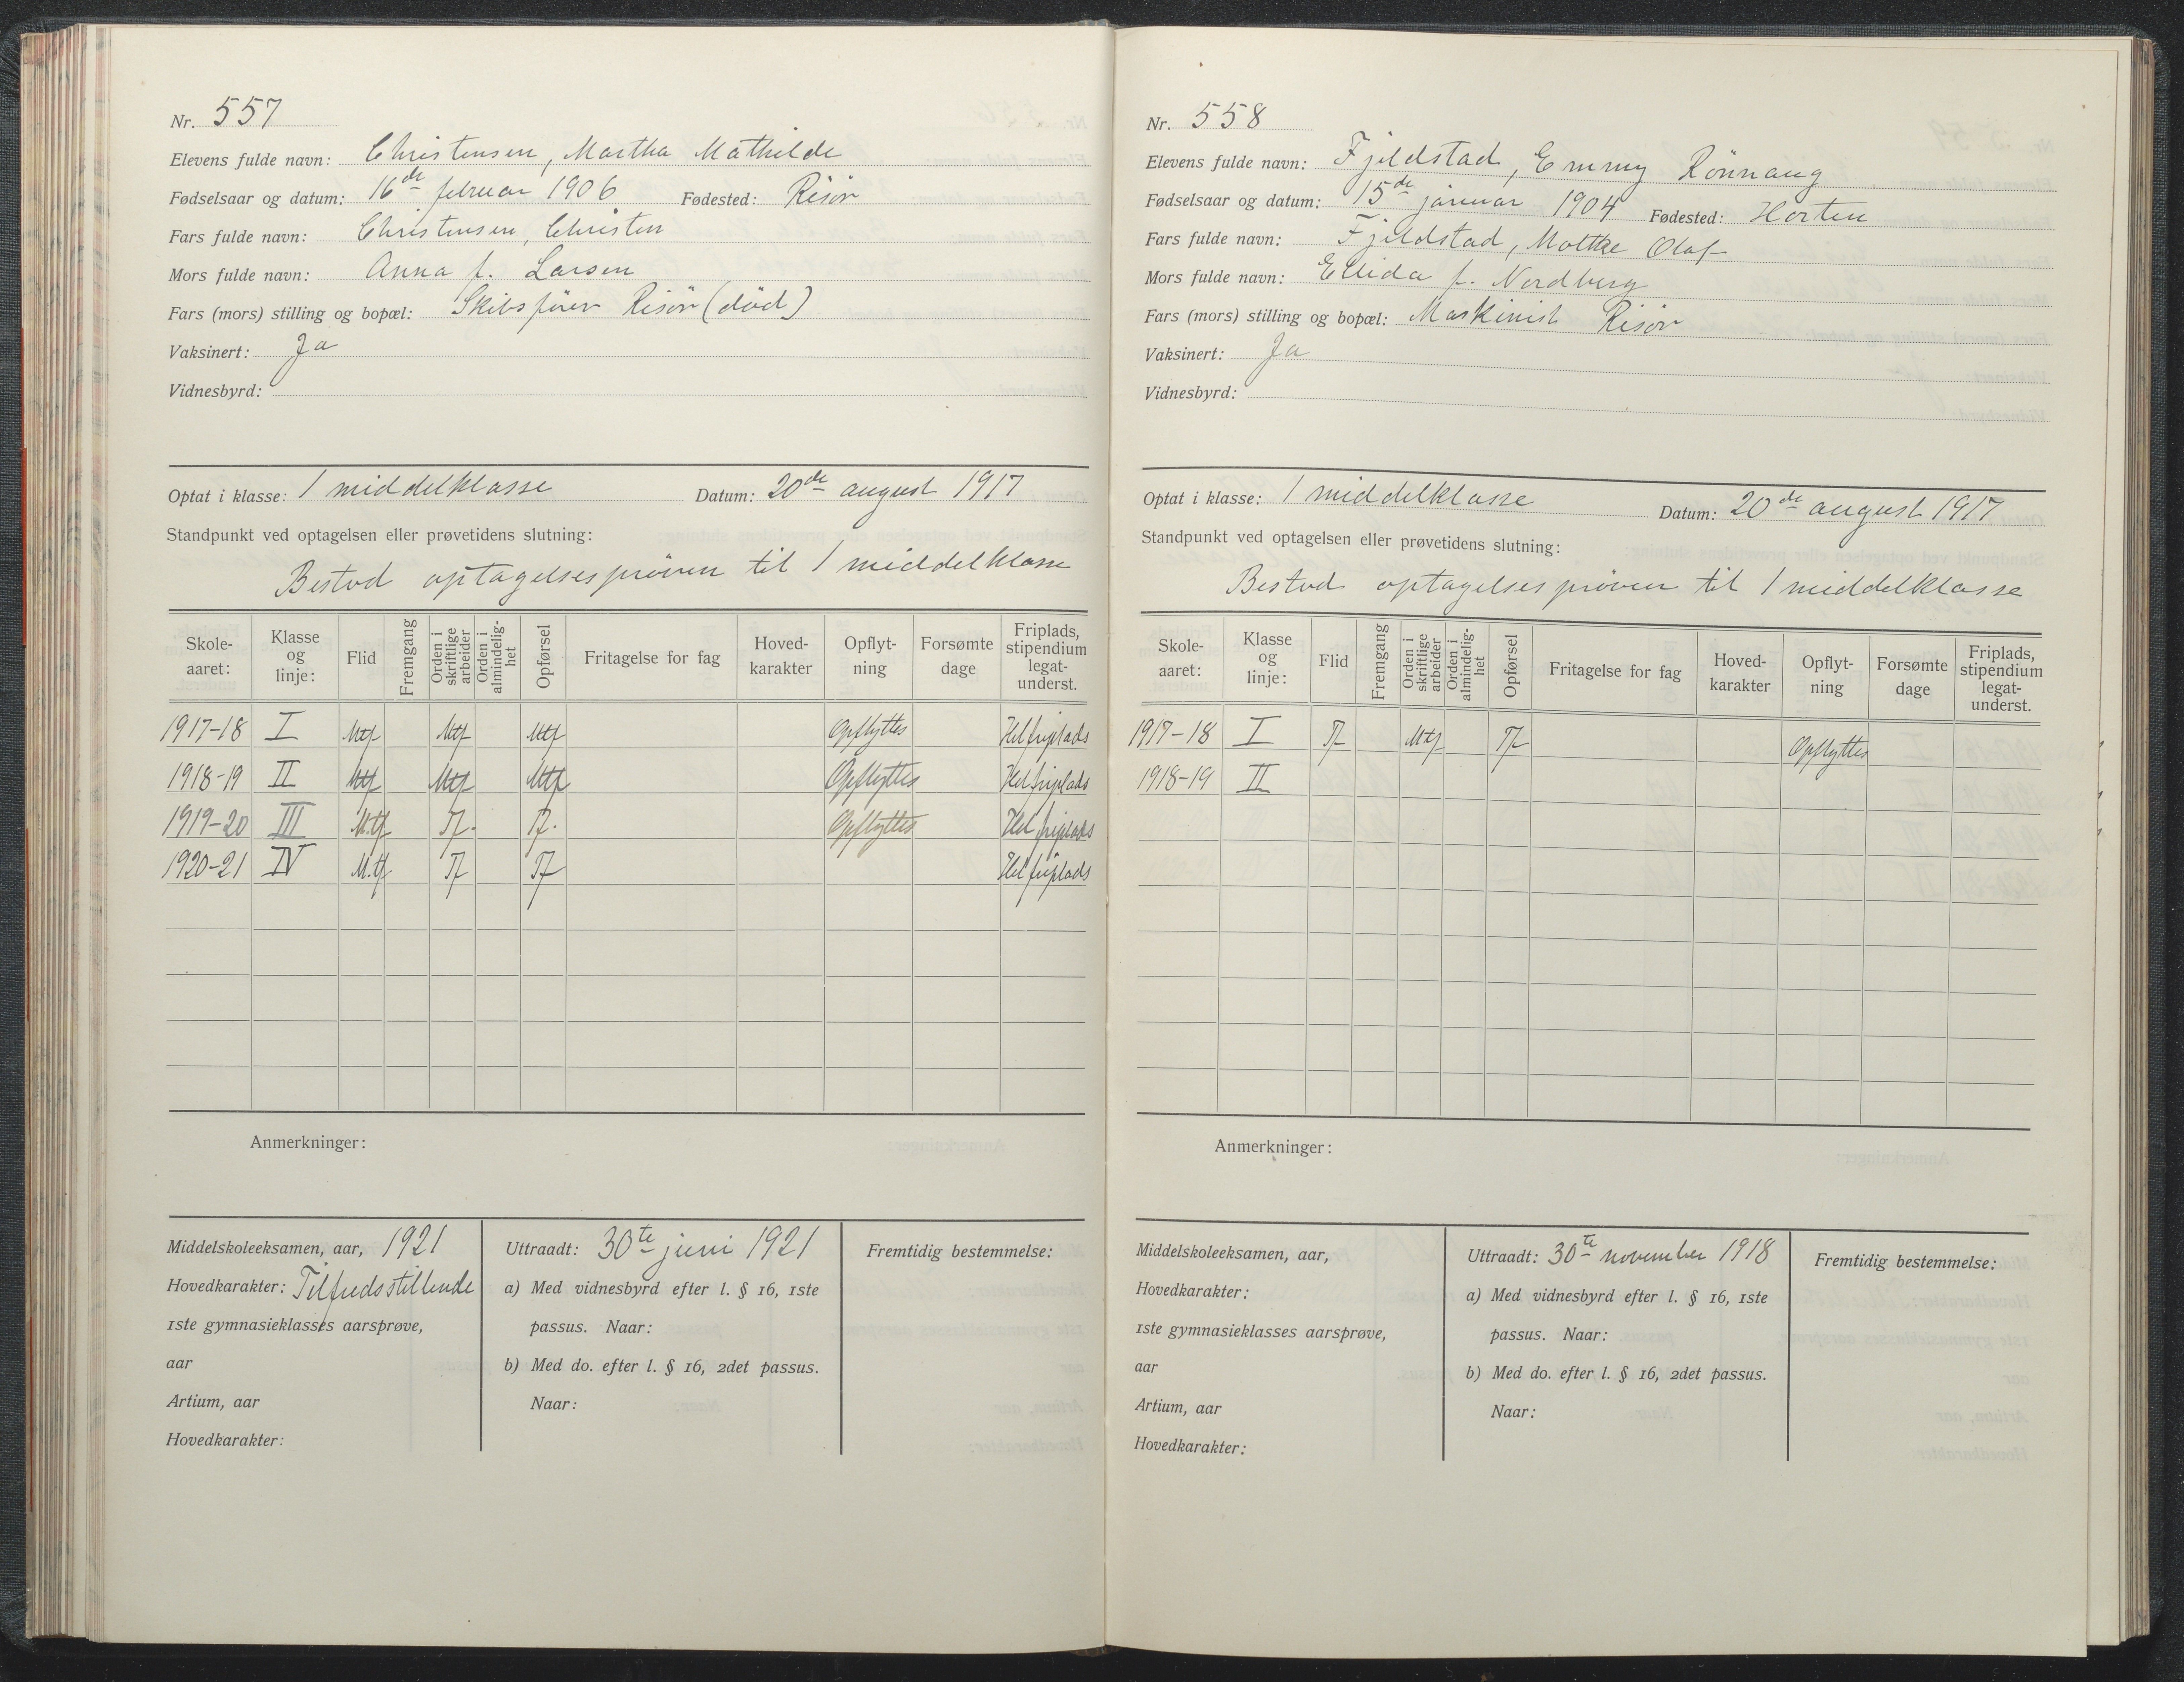 Nr. 557
Elevens fulde navn: Christensen, Martha Mathilde
Fødselsaar og datum: 16de februar 1906 Fødested: Risör
Fars fulde navn: Christensen, Christen
Mors fulde navn: Anna f. Larsen
Fars (mors) stilling og bopæl: Skibsfører Risör (död)
Vaksinert: Ja
Vidnesbyrd:
Optat i klasse: I middelklasse Datum: 20de august 1917
Standpunkt ved optagelsen eller prøvetidens slutning:
Bestod optagelsesprøven til I middelklasse
Skole-aaret: Klasse og linje: Flid Fremgang Orden i skriftlige arbeider Orden i almindelig-het Opførsel Fritagelse for fag Hoved-karakter Opflyt-ning Forsømte dage Friplads, stipendium legat-underst.
1917-18 I Mtf Mtf Mtf Opflyttes Hel friplads
1918-19 II Mtf Mtf Mtf Opflyttes Hel friplads
1919-20 III M.tf Tf. Tf. Opflyttes Hel friplads
1920-21 IV M.tf Tf Tf Hel friplads
Anmerkninger:
Middelskoleeksamen, aar, 1921
Hovedkarakter: Tilfredsstillende
1ste gymnasieklasses aarsprøve,
aar
Artium, aar
Hovedkarakter:
Uttraadt: 30te juni 1921
a) Med vidnesbyrd efter l. § 16, 1ste
passus. Naar:
b) Med do. efter l. § 16, 2det passus.
Naar:
Fremtidig bestemmelse:
Nr. 558
Elevens fulde navn: Fjeldstad, Emmy Rönnaug
Fødselsaar og datum: 15de januar 1904 Fødested: Horten
Fars fulde navn: Fjeldstad, Moltke Olaf
Mors fulde navn: Ellida f. Nordberg
Fars (mors) stilling og bopæl: Maskinist Risör
Vaksinert: Ja
Vidnesbyrd:
Optat i klasse: I middelklasse Datum: 20de august 1917
Standpunkt ved optagelsen eller prøvetidens slutning:
Bestod optagelsesprøven til I middelklasse
Skole-aaret: Klasse og linje: Flid Fremgang Orden i skriftlige arbeider Orden i almindelig-het Opførsel Fritagelse for fag Hoved-karakter Opflyt-ning Forsømte dage Friplads, stipendium legat-underst.
1917-18 I Tf Mtf Tf Opflyttes
1918-19 II
Anmerkninger:
Middelskoleeksamen, aar,
Hovedkarakter:
1ste gymnasieklasses aarsprøve,
aar
Artium, aar
Hovedkarakter:
Uttraadt: 30te november 1918
a) Med vidnesbyrd efter l. § 16, 1ste
passus. Naar:
b) Med do. efter l. § 16, 2det passus.
Naar:
Fremtidig bestemmelse: